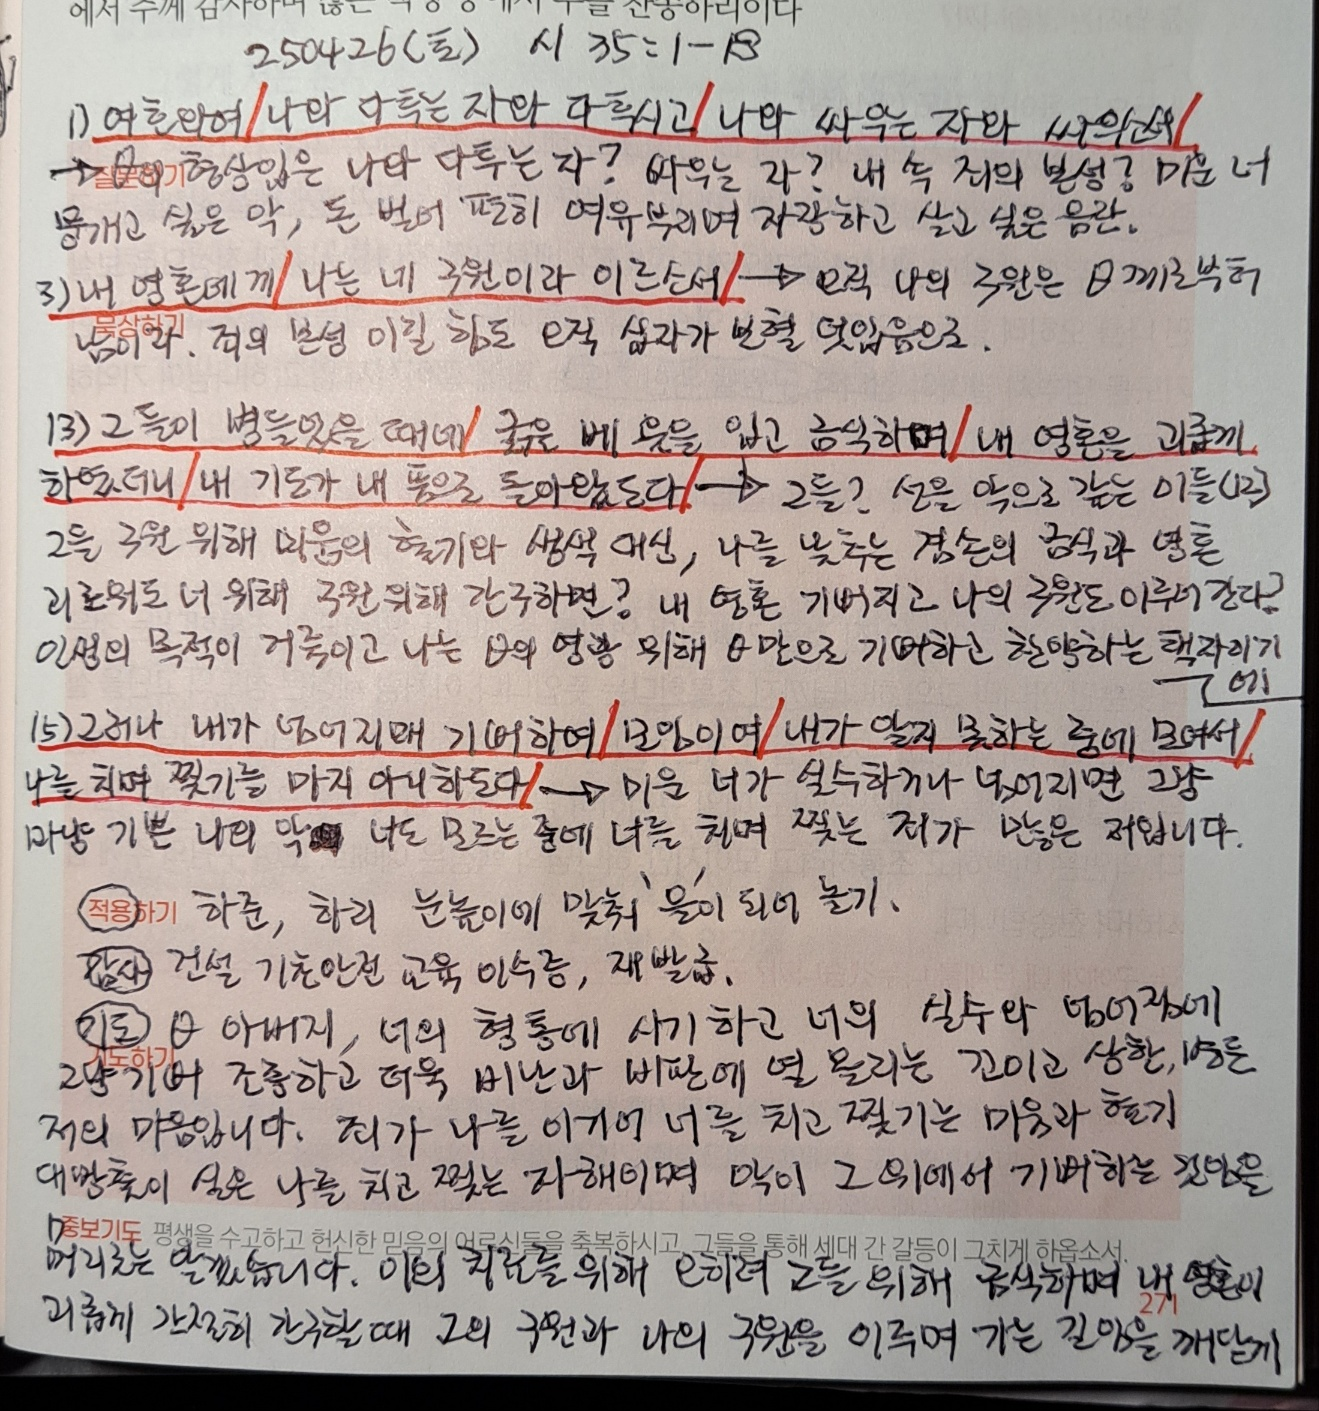 에서 주께 감사하며 많은 백성 중에서 주를 찬송하리이다
250426(토) 시 35:1-18
1) 여호와여/나와 다투는 자와 다투시고/나와 싸우는 자와 싸우소서/
→ θ의 형상입은 나와 다투는 자? 싸우는 자? 내 속 죄의 본성? 미운 너
질문하기
뭉개고 싶은 악, 돈 벌어 편히 여유부리며 자랑하고 살고 싶은 음란.
3) 내 영혼에게/나는 네 구원이라 이르소서/→ 오직 나의 구원은 θ께로부터
묵상하기
남이라. 죄의 본성 이길 힘도 오직 십자가 보혈 덧입음으로.
13) 그들이 병들었을 때에/굵은 베 옷을 입고 금식하며/내 영혼을 괴롭게
하였더니/내 기도가 내 품으로 돌아왔도다/→ 그들? 선을 악으로 갚는 이들(12)
그들 구원 위해 미움의 혈기와 생색 대신, 나를 낮추는 겸손의 금식과 영혼
괴로워도 너 위해 구원 위해 간구하면? 내 영혼 기뻐지고 나의 구원도 이루어 간다?
인생의 목적이 거룩이고 나는 θ의 영광 위해 θ만으로 기뻐하고 찬양하는 택자이기
에
15) 그러나 내가 넘어지매 기뻐하여/모임이여/내가 알지 못하는 중에 모여서/
나를 치며 찢기를 마지 아니하도다/→ 미운 너가 실수하거나 넘어지면 그냥
마냥 기쁜 나의 악 너도 모르는 중에 너를 치며 찢는 죄가 많은 저입니다.
적용하기 하준, 하리 눈높이에 맞춰 '몰'이 되어 놀기.
감사 건설 기초안전 교육 이수증, 재발급.
기도 θ 아버지, 너의 형통에 시기하고 너의 실수와 넘어짐에
기도하기
그냥 기뻐 조롱하고 더욱 비난과 비판에 열 올리는 꼬이고 상한, 병든
저의 마음입니다. 죄가 나를 이기어 너를 치고 찢기는 미움과 혈기
대방출이 실은 나를 치고 찢는 자해이며 악이 그 위에서 기뻐하는 것임을
중보기도 평생을 수고하고 헌신한 믿음의 어르신들을 축복하시고, 그들을 통해 세대 간 갈등이 그치게 하옵소서.
머리로는 알겠습니다. 이의 치료를 위해 오히려 그들 위해 금식하며 내 영혼이
271
괴롭게 간절히 간구할 때 그의 구원과 나의 구원을 이루며 가는 길임을 깨닫게